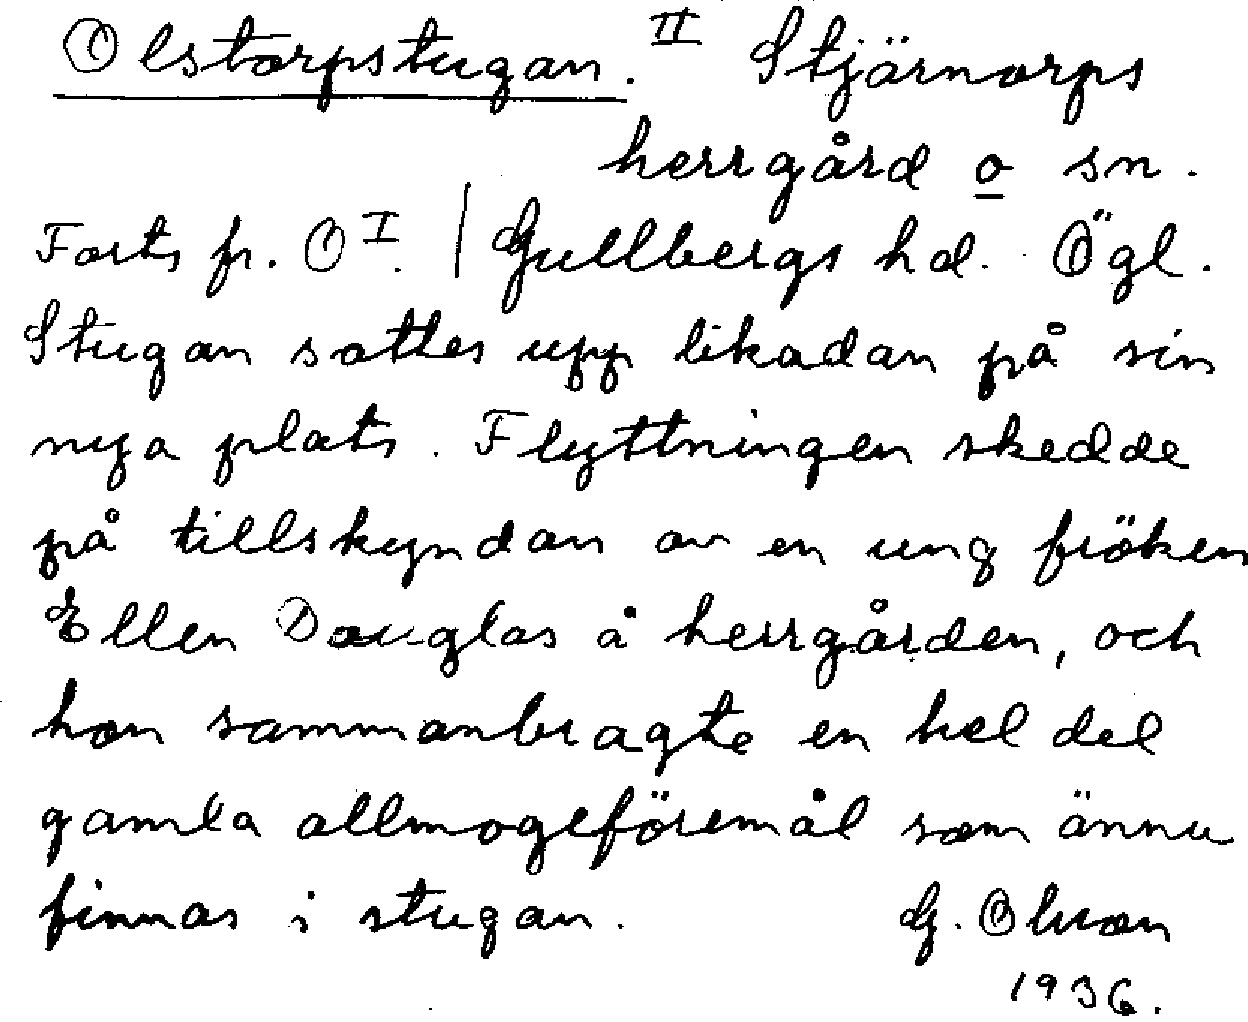 Olstorpstugan. II Stjärnorps
herrgård o sn.
Forts fr. O I. | Gullbergs hd. Ögl.
Stugan sattes upp likadan på sin
nya plats. Flyttningen skedde
på tillskyndan av en ung fröken
Ellen Douglas å herrgården, och
hon sammanbragte en hel del
gamla allmogeföremål som ännu
finnas i stugan. G. Olson
1936.